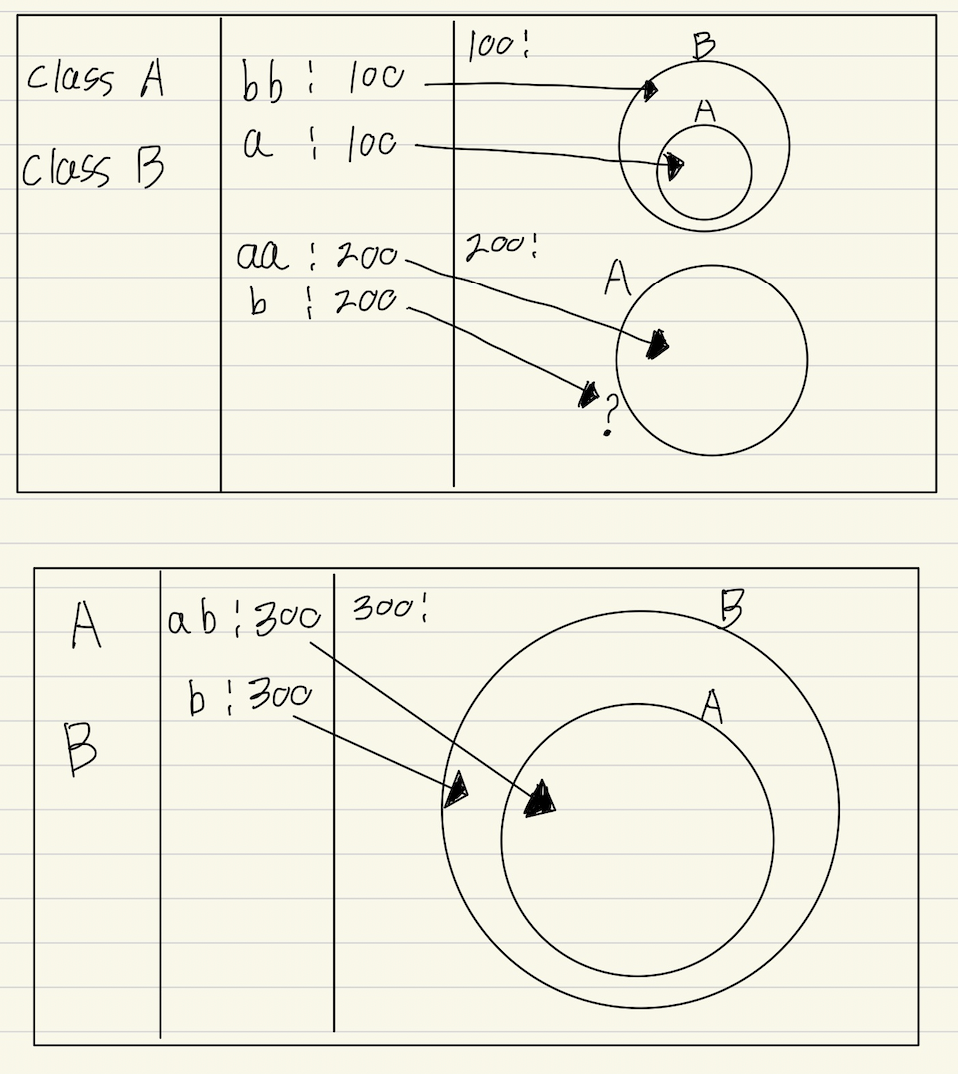 class A
class B
bb : 100
a : 100
aa : 200
b : 200
100:
B
A
200:
A
?
A
B
ab : 300
b : 300
300:
B
A